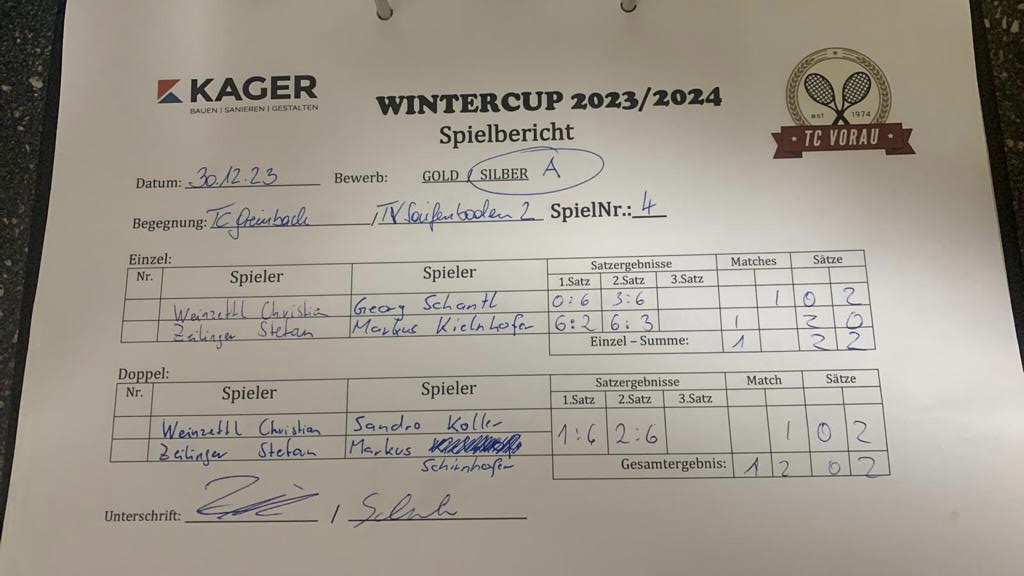 KAGER
BAUEN | SANIEREN | GESTALTEN
WINTERCUP 2023/2024
Spielbericht
est 1974
TC VORAU
Datum: 30.12.23 Bewerb: GOLD / SILBER A
Begegnung: TC Greinbach / TV Saifenboden 2 SpielNr.: 4
Einzel:
Nr. Spieler Spieler Satzergebnisse Matches Sätze
1.Satz 2.Satz 3.Satz
Weinzettl Christian Georg Schantl 0:6 3:6 1 0 2
Zeilinger Stefan Markus Kielnhofer 6:2 6:3 1 2 0
Einzel – Summe: 1 2 2
Doppel:
Nr. Spieler Spieler Satzergebnisse Match Sätze
1.Satz 2.Satz 3.Satz
Weinzettl Christian Sandro Koller 1:6 2:6 1 0 2
Zeilinger Stefan Markus
Schirnhofer Gesamtergebnis: 1 2 0 2
Unterschrift: /